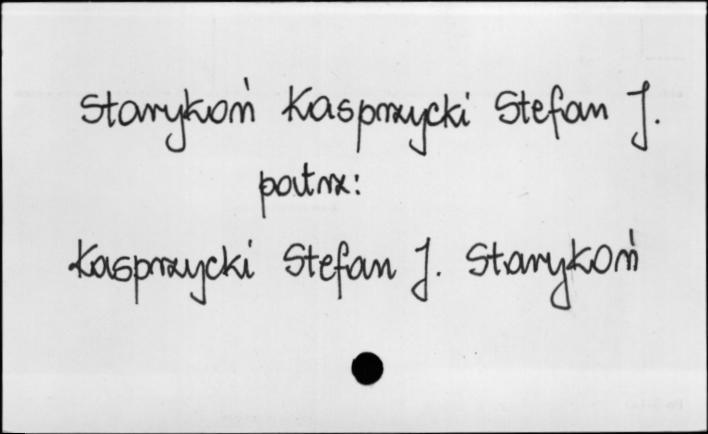 Starykoń Kasprzycki Stefan J.
patrz:
Kasprzycki Stefan J. Starykoń